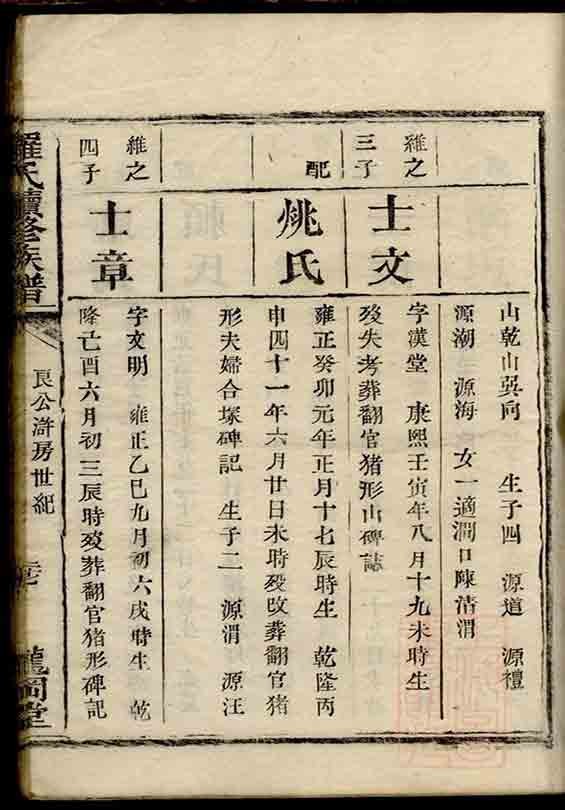 山乾山巽向　生子四　源道　源禮
源潮　源海　女一適澗口陳清渭
維之
三子
士文
字漢堂　康熙壬寅年八月十九未時生
歿失考葬翻官猪形山碑誌
配
姚氏
雍正癸卯元年正月十七辰時生　乾隆丙
申四十一年六月廿日未時歿改葬翻官猪
形夫婦合塚碑記　生子二　源渭　源汪
維之
四子
士章
字文明　雍正乙巳九月初六戌時生　乾
隆亡酉六月初三辰時歿葬翻官猪形碑記
羅氏續修族譜
良公滸房世紀
龍岡堂